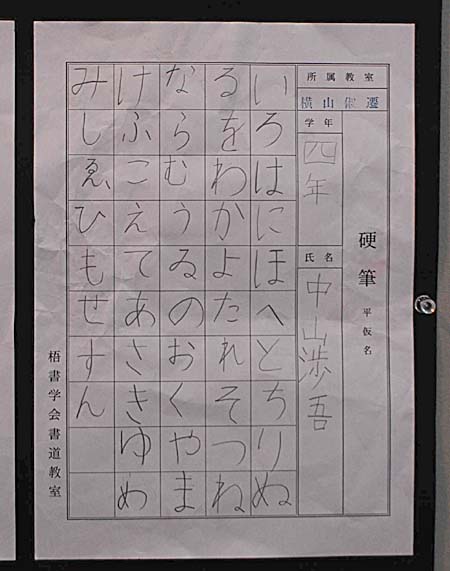 硬筆 平仮名
所属教室
横山
学年
四年
氏名
中山渉吾
いろはにほへとちりぬ
るをわかよたれそつね
ならむうゐのおくやま
けふこえてあさきゆめ
みしゑひもせすん
梧書学会書道教室